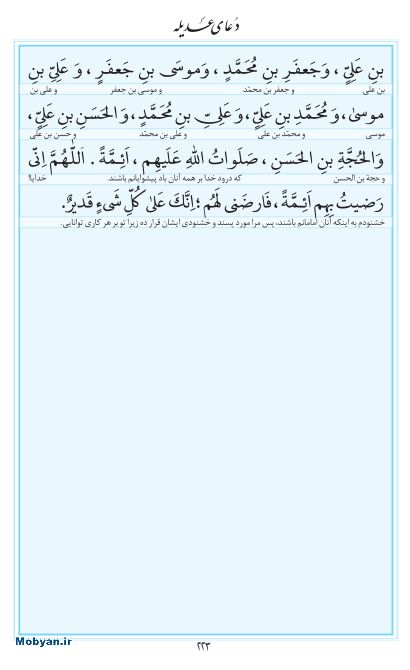 دُعای عَدیله
بنِ عَلِیٍّ ، وَجَعفَرِ بنِ مُحَمَّدٍ ، وَموسَی بنِ جَعفَرٍ ، وَ عَلِیِّ بنِ
بن علی و جعفر بن محمّد و موسی بن جعفر و علی بن
موسیٰ، وَ مُحَمَّدِ بنِ عَلِیٍّ، وَ عَلِیِّ بنِ مُحَمَّدٍ، وَ الحَسَنِ بنِ عَلِیٍّ،
موسی و محمّد بن علی و علی بن محمّد و حسن بن علی
وَالحُجَّةِ بنِ الحَسَنِ ، صَلَواتُ اللهِ عَلَیهِم ، اَئِمَّةً . اَللّٰهُمَّ اِنّی
و حجة بن الحسن که درود خدا بر همه آنان باد پیشوایانم باشند. خدایا!
رَضیتُ بِهِم اَئِمَّةً ، فَارضَنی لَهُم ؛ اِنَّکَ عَلیٰ کُلِّ شَیءٍ قَدیرٌ.
خشنودم به اینکه آنان امامانم باشند، پس مرا مورد پسند و خشنودی ایشان قرار ده زیرا تو بر هر کاری توانایی.
Mobyan.ir
۲۲۳